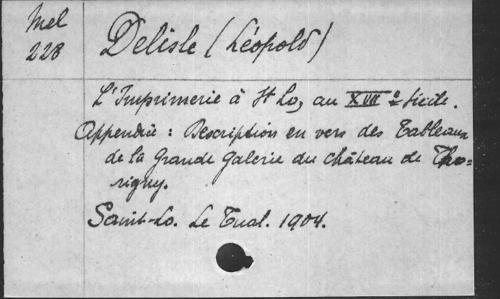 Mel
228
Delisle (Léopold)
L'Imprimerie à St Lo, au XVIIe siècle.
Appendice : Description en vers des Tableaux
de la Grande Galerie du Château de Tho-
rigny.
Saint-Lo. Le Tual. 1904.